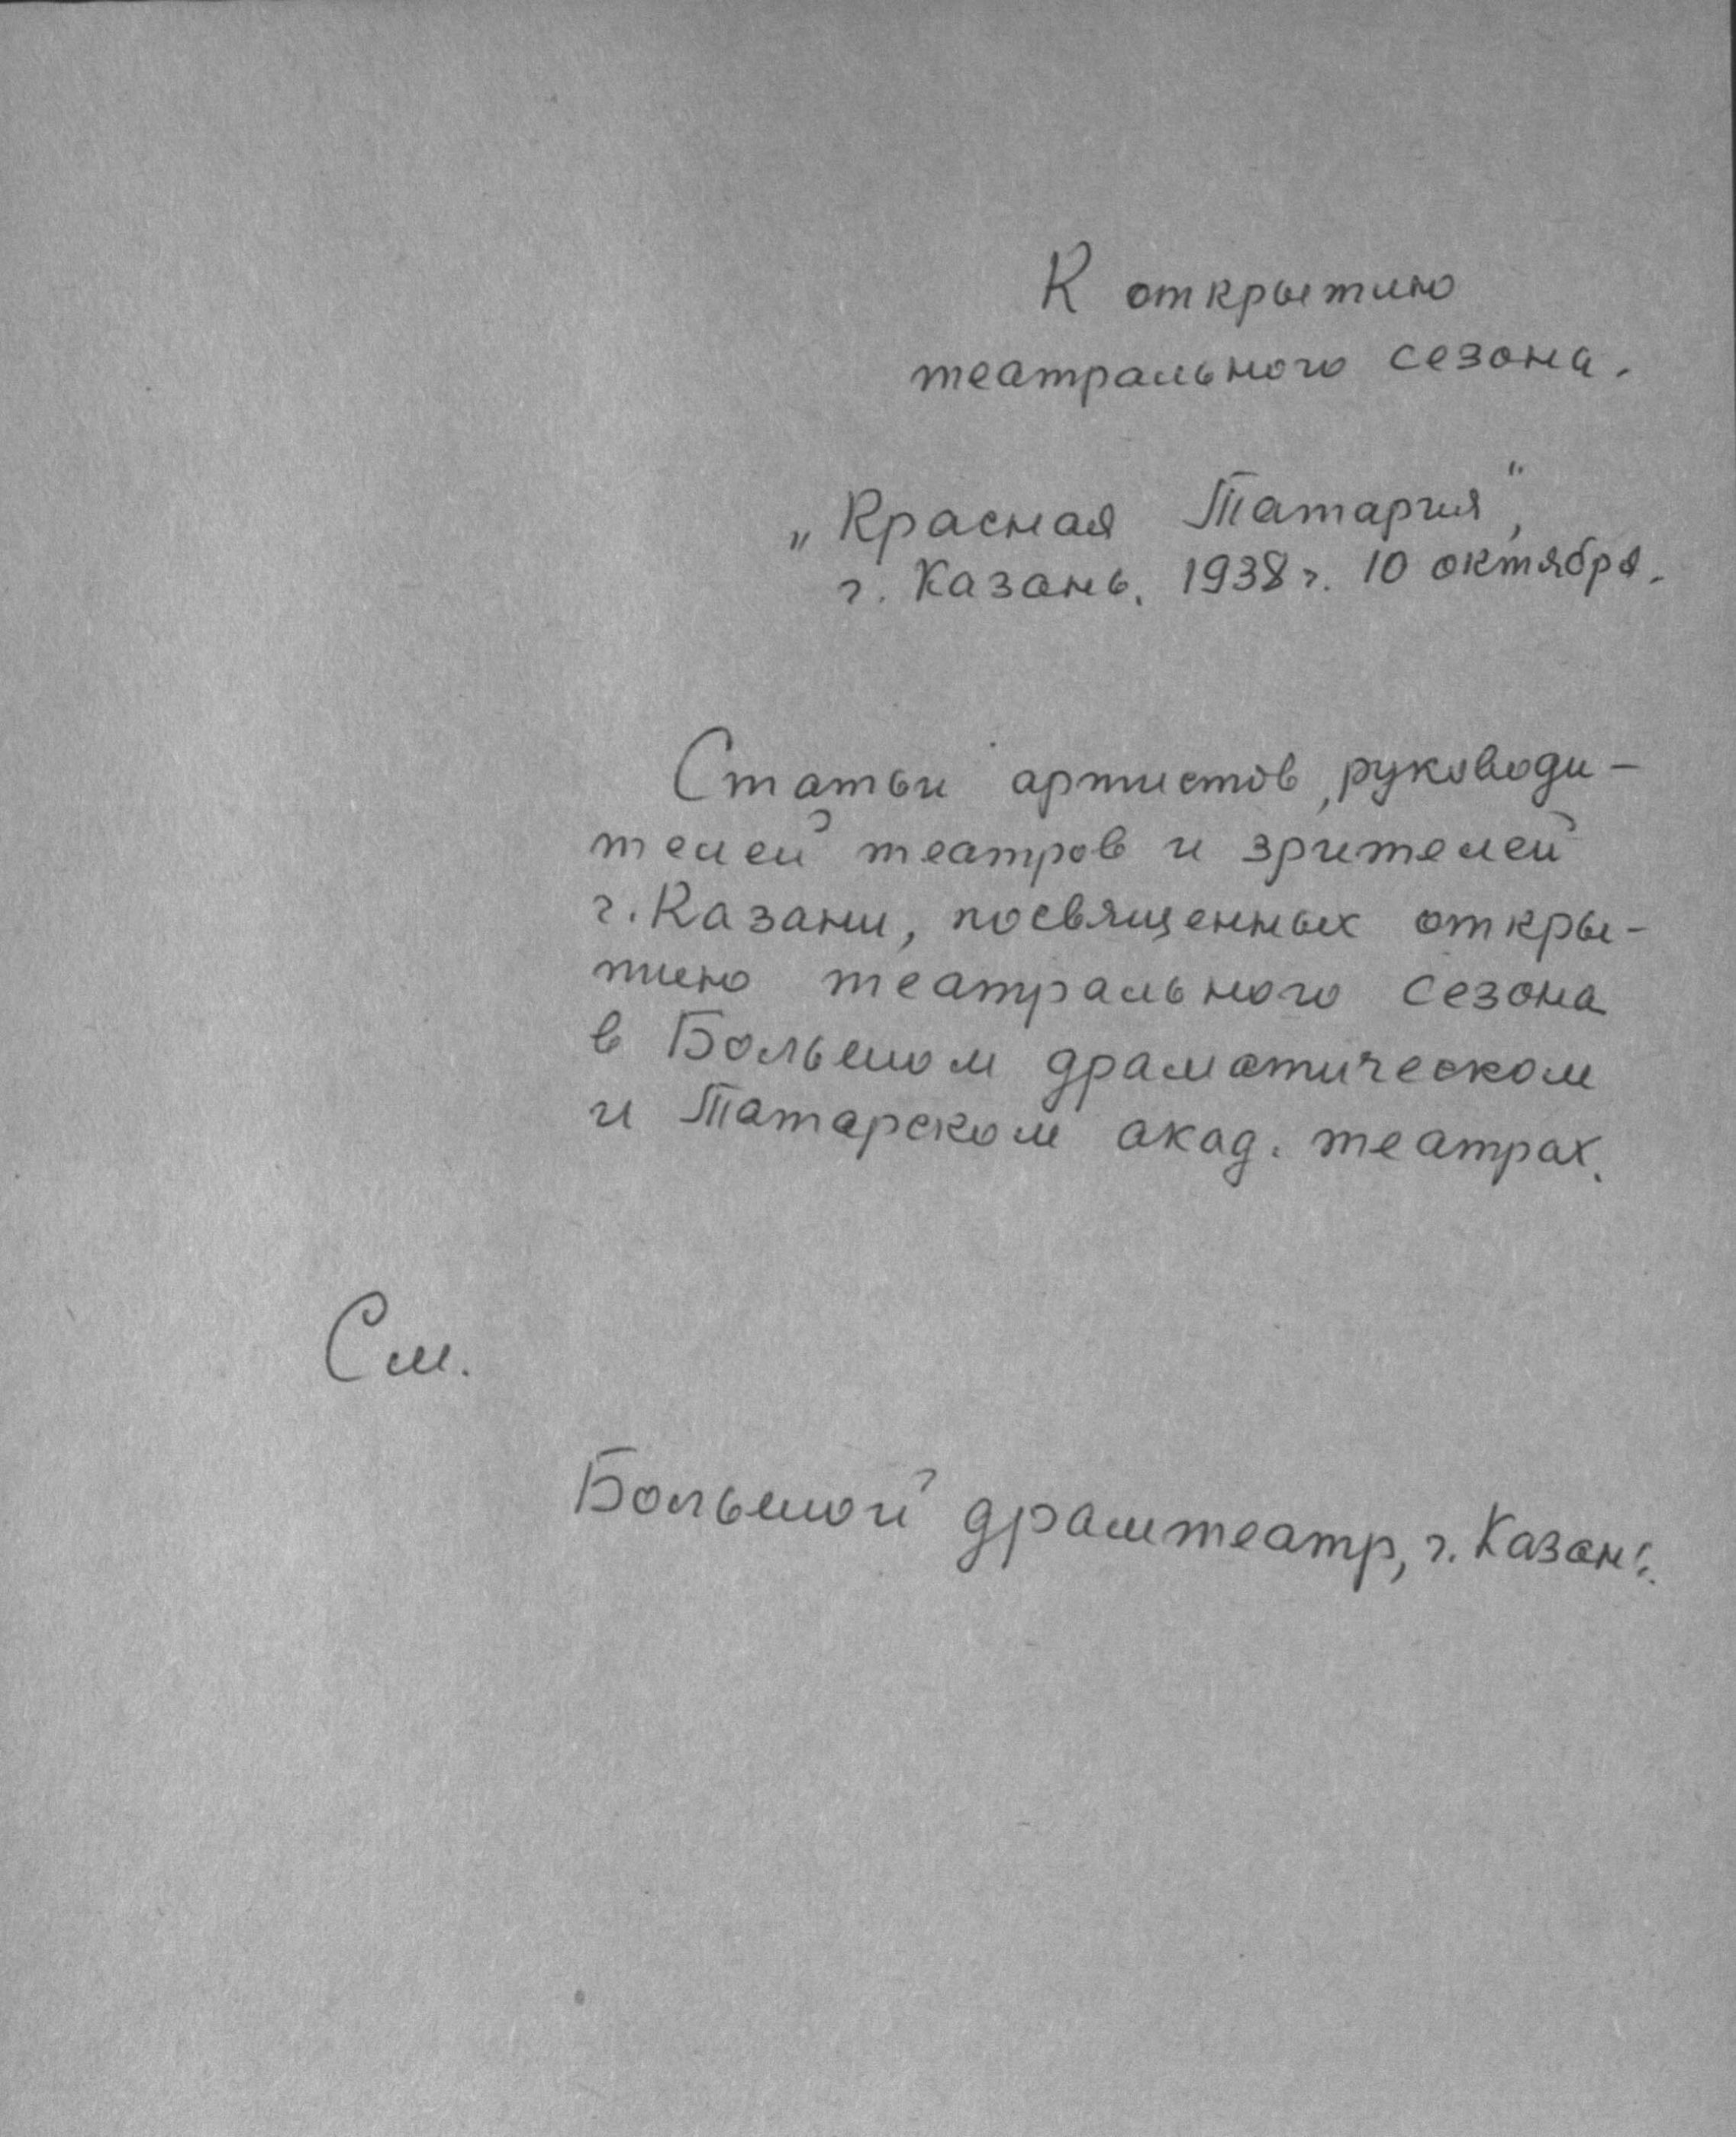 К открытию
театрального сезона.
„Красная Татария",
г. Казань, 1938 г. 10 октября.
Статьи артистов, руководи-
телей театров и зрителей
г. Казани, посвященных откры-
тию театрального сезона
в Большом драматическом
и Татарском акад. театрах.
См.
Большой драмтеатр, г. Казань.